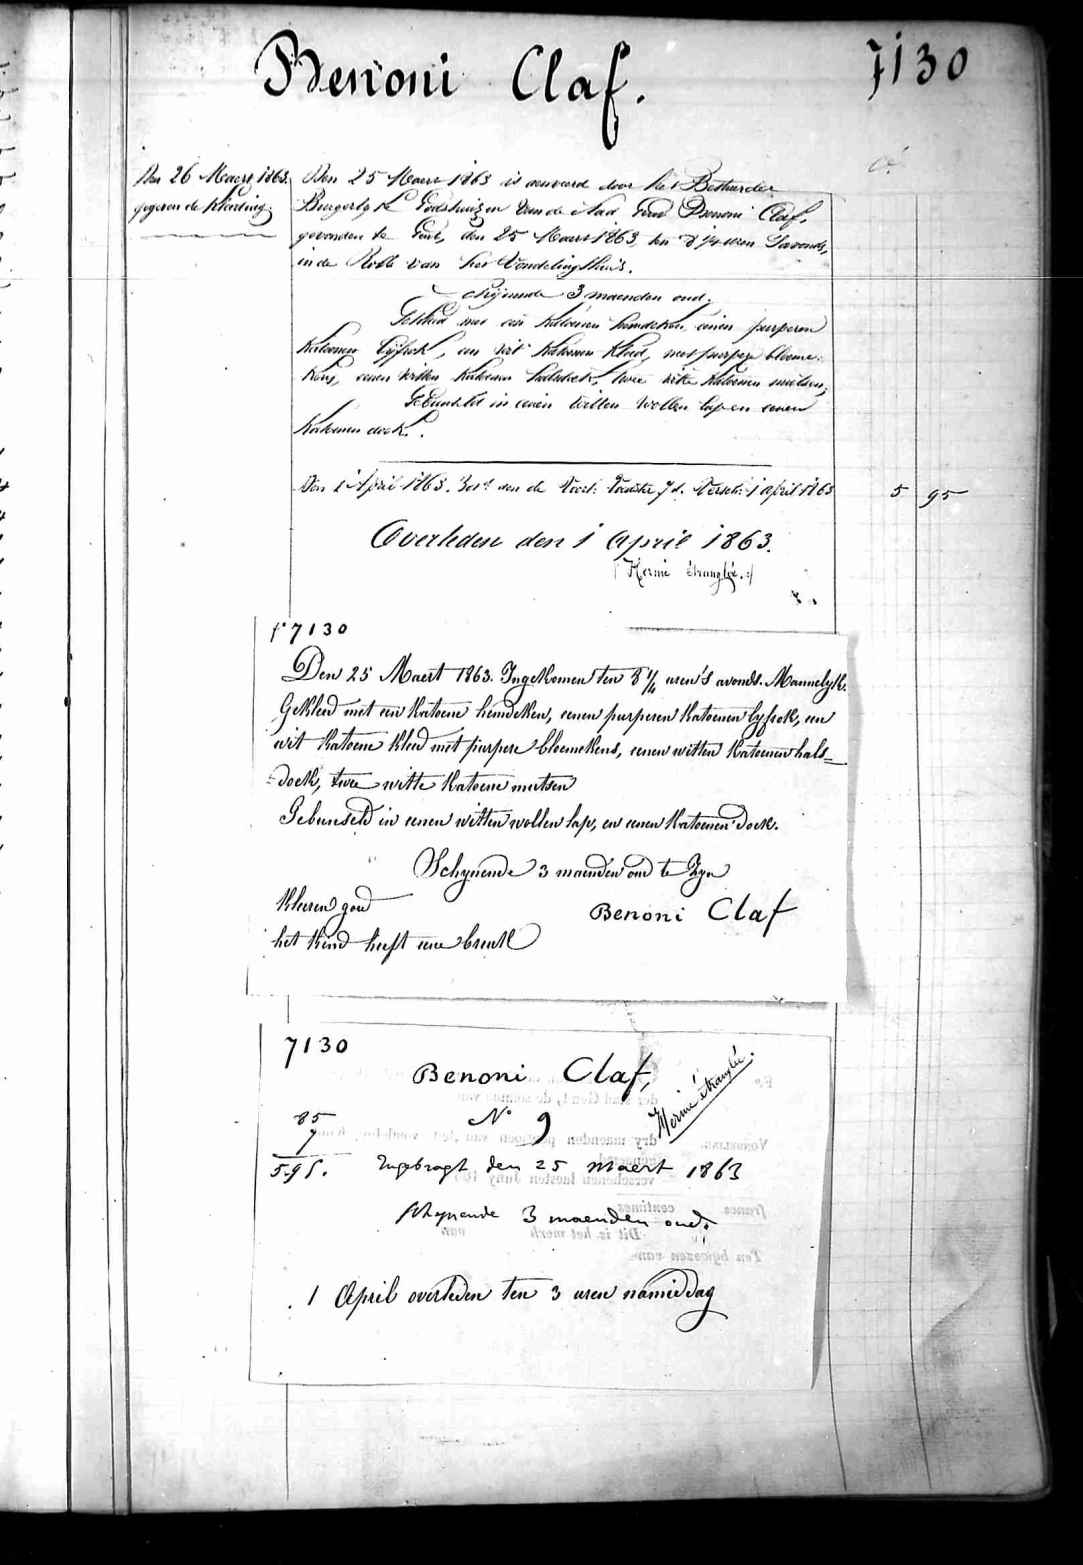 Benoni Claf.
7130
Den 26 Maert 1863.
gegeven de kleeding.
Den 25 Maert 1863 is aenveerd door het Bestuur der
Burgerlyke Godshuizen van de Stad Gend Benoni Claf,
gevonden te Gent, den 25 Maert 1863, ten 8 1/4 uren 'savonds,
in de Rolle van het Vondelinghuis.
Schijnende 3 maenden oud.
Gekleed met een katoenen hemdeken, eenen purperen
katoenen lyfrok, een wit katoenen kleed, met purpere bloeme-
kens, eenen witten katoenen halsdoek, twee witte katoenen mutsen;
Gebunseld in eenen witten wollen lap en eenen
katoenen doek.
Den 1 April 1863. aen de 7 d. Versch. 1 april 1863
5 95
Overleden den 1 April 1863.
(Hernie étranglée.)
7130
Den 25 Maert 1863. Ingekomen ten 8 1/4 uren 's avonds. Mannelyk.
Gekleed met een katoene hemdeken, eenen purperen katoenen lyfrok, een
wit katoene kleed met purpere bloemekens, eenen witten katoenen hals=
=doek, twee witte katoene mutsen
Gebunseld in eenen witten wollen lap, en eenen katoenen doek.
Schynende 3 maenden oud te zyn
kleeren goed
Benoni Claf
het kind heeft eene breuk
7130
Benoni Claf,
Hernie étranglée.
85
7
5.95.
N° 9
Ingebragt den 25 maert 1863
schynende 3 maenden oud.
1 April overleden ten 3 uren namiddag